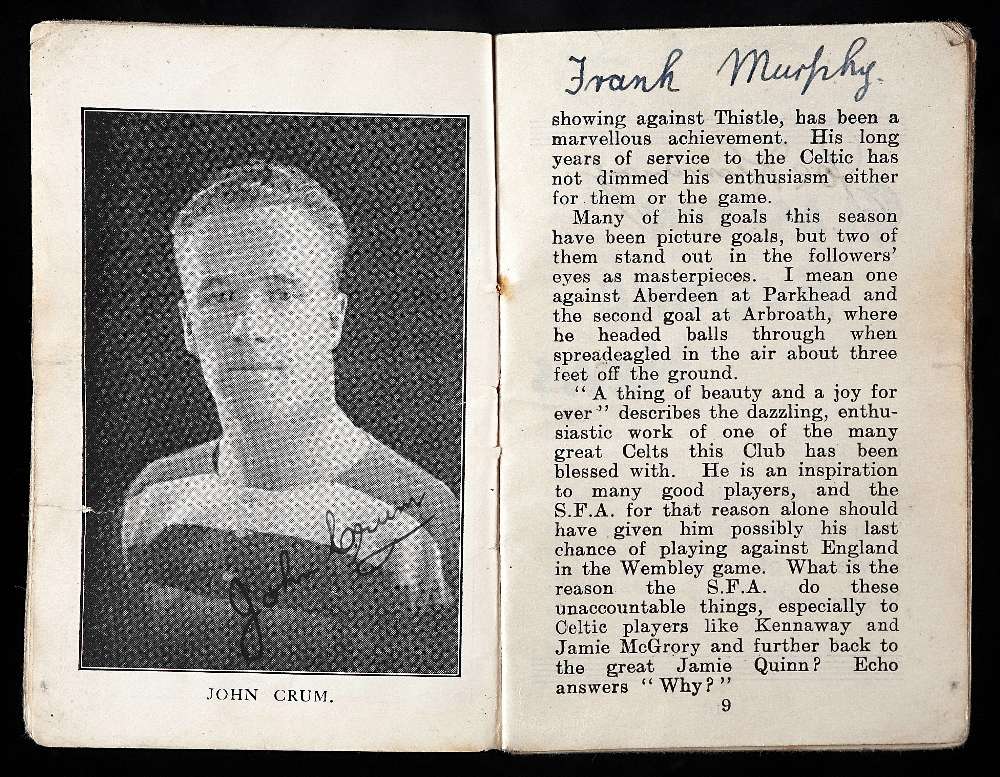 John Crum
JOHN CRUM.
Frank Murphy.
showing against Thistle, has been a
marvellous achievement. His long
years of service to the Celtic has
not dimmed his enthusiasm either
for them or the game.
Many of his goals this season
have been picture goals, but two of
them stand out in the followers'
eyes as masterpieces. I mean one
against Aberdeen at Parkhead and
the second goal at Arbroath, where
he headed balls through when
spreadeagled in the air about three
feet off the ground.
“A thing of beauty and a joy for
ever” describes the dazzling, enthu-
siastic work of one of the many
great Celts this Club has been
blessed with. He is an inspiration
to many good players, and the
S.F.A. for that reason alone should
have given him possibly his last
chance of playing against England
in the Wembley game. What is the
reason the S.F.A. do these
unaccountable things, especially to
Celtic players like Kennaway and
Jamie McGrory and further back to
the great Jamie Quinn? Echo
answers “Why?”
9